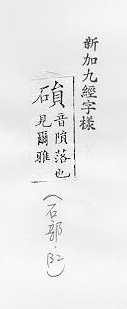 新加九經字樣
磒
音隕落也
見爾雅
（石部．B2）